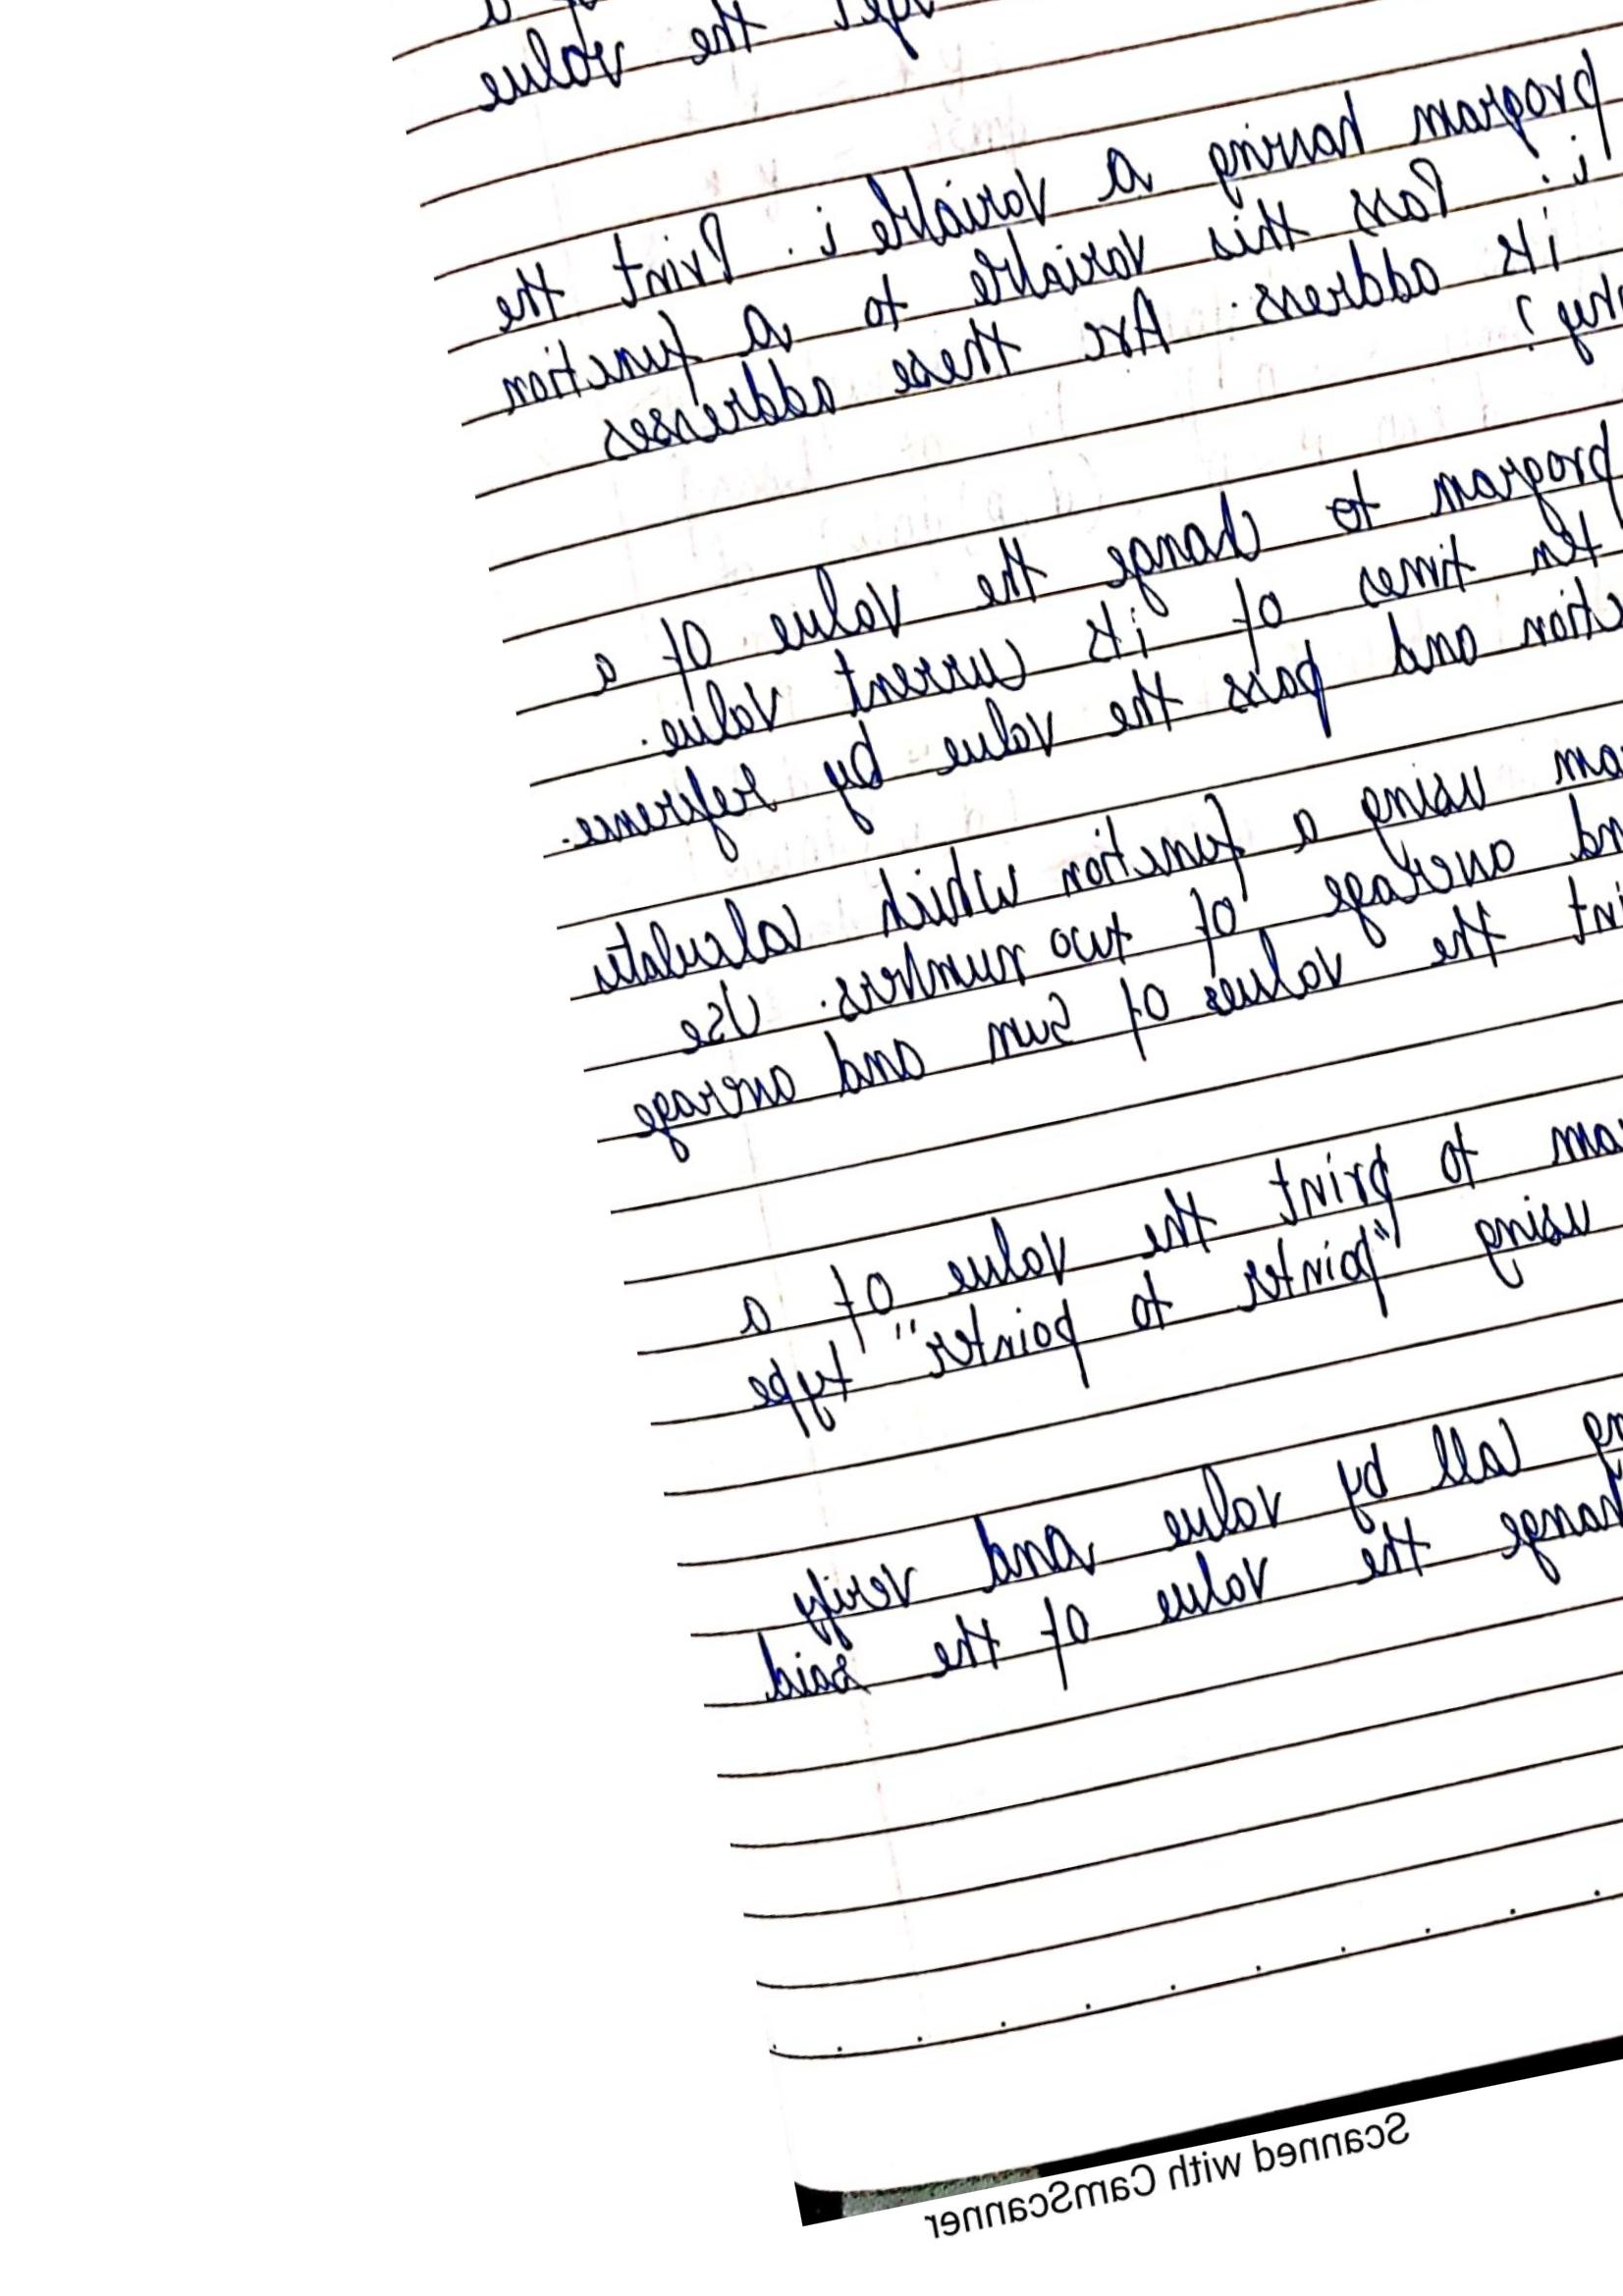 the value
program having a variable i. Print the
i. Pass this variable to a function
its address. Are these addresses
hy?
program to change the value of a
ten times of its current value.
ction and pass the value by reference.
am using a function which calculate
nd average of two numbers. Use
int the values of sum and average
am to print the value of a
using "pointer to pointer" type
ng call by value and verify
hange the value of the said
Scanned with CamScanner